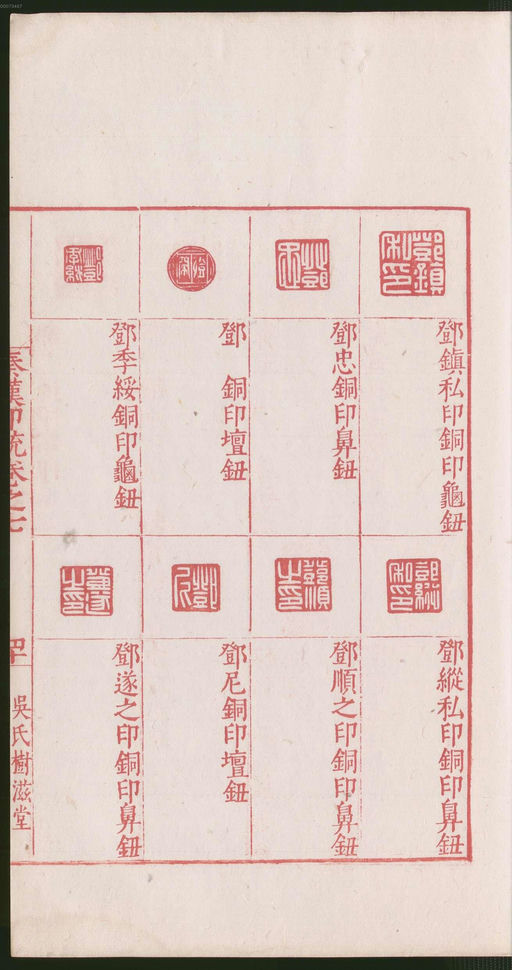 00073487
鄧鎮私印銅印龜鈕
鄧忠銅印鼻鈕
鄧　銅印壇鈕
鄧季綏銅印龜鈕
鄧縱私印銅印鼻鈕
鄧順之印銅印鼻鈕
鄧尼銅印壇鈕
鄧遂之印銅印鼻鈕
秦漢印統卷之七
吳氏樹滋堂